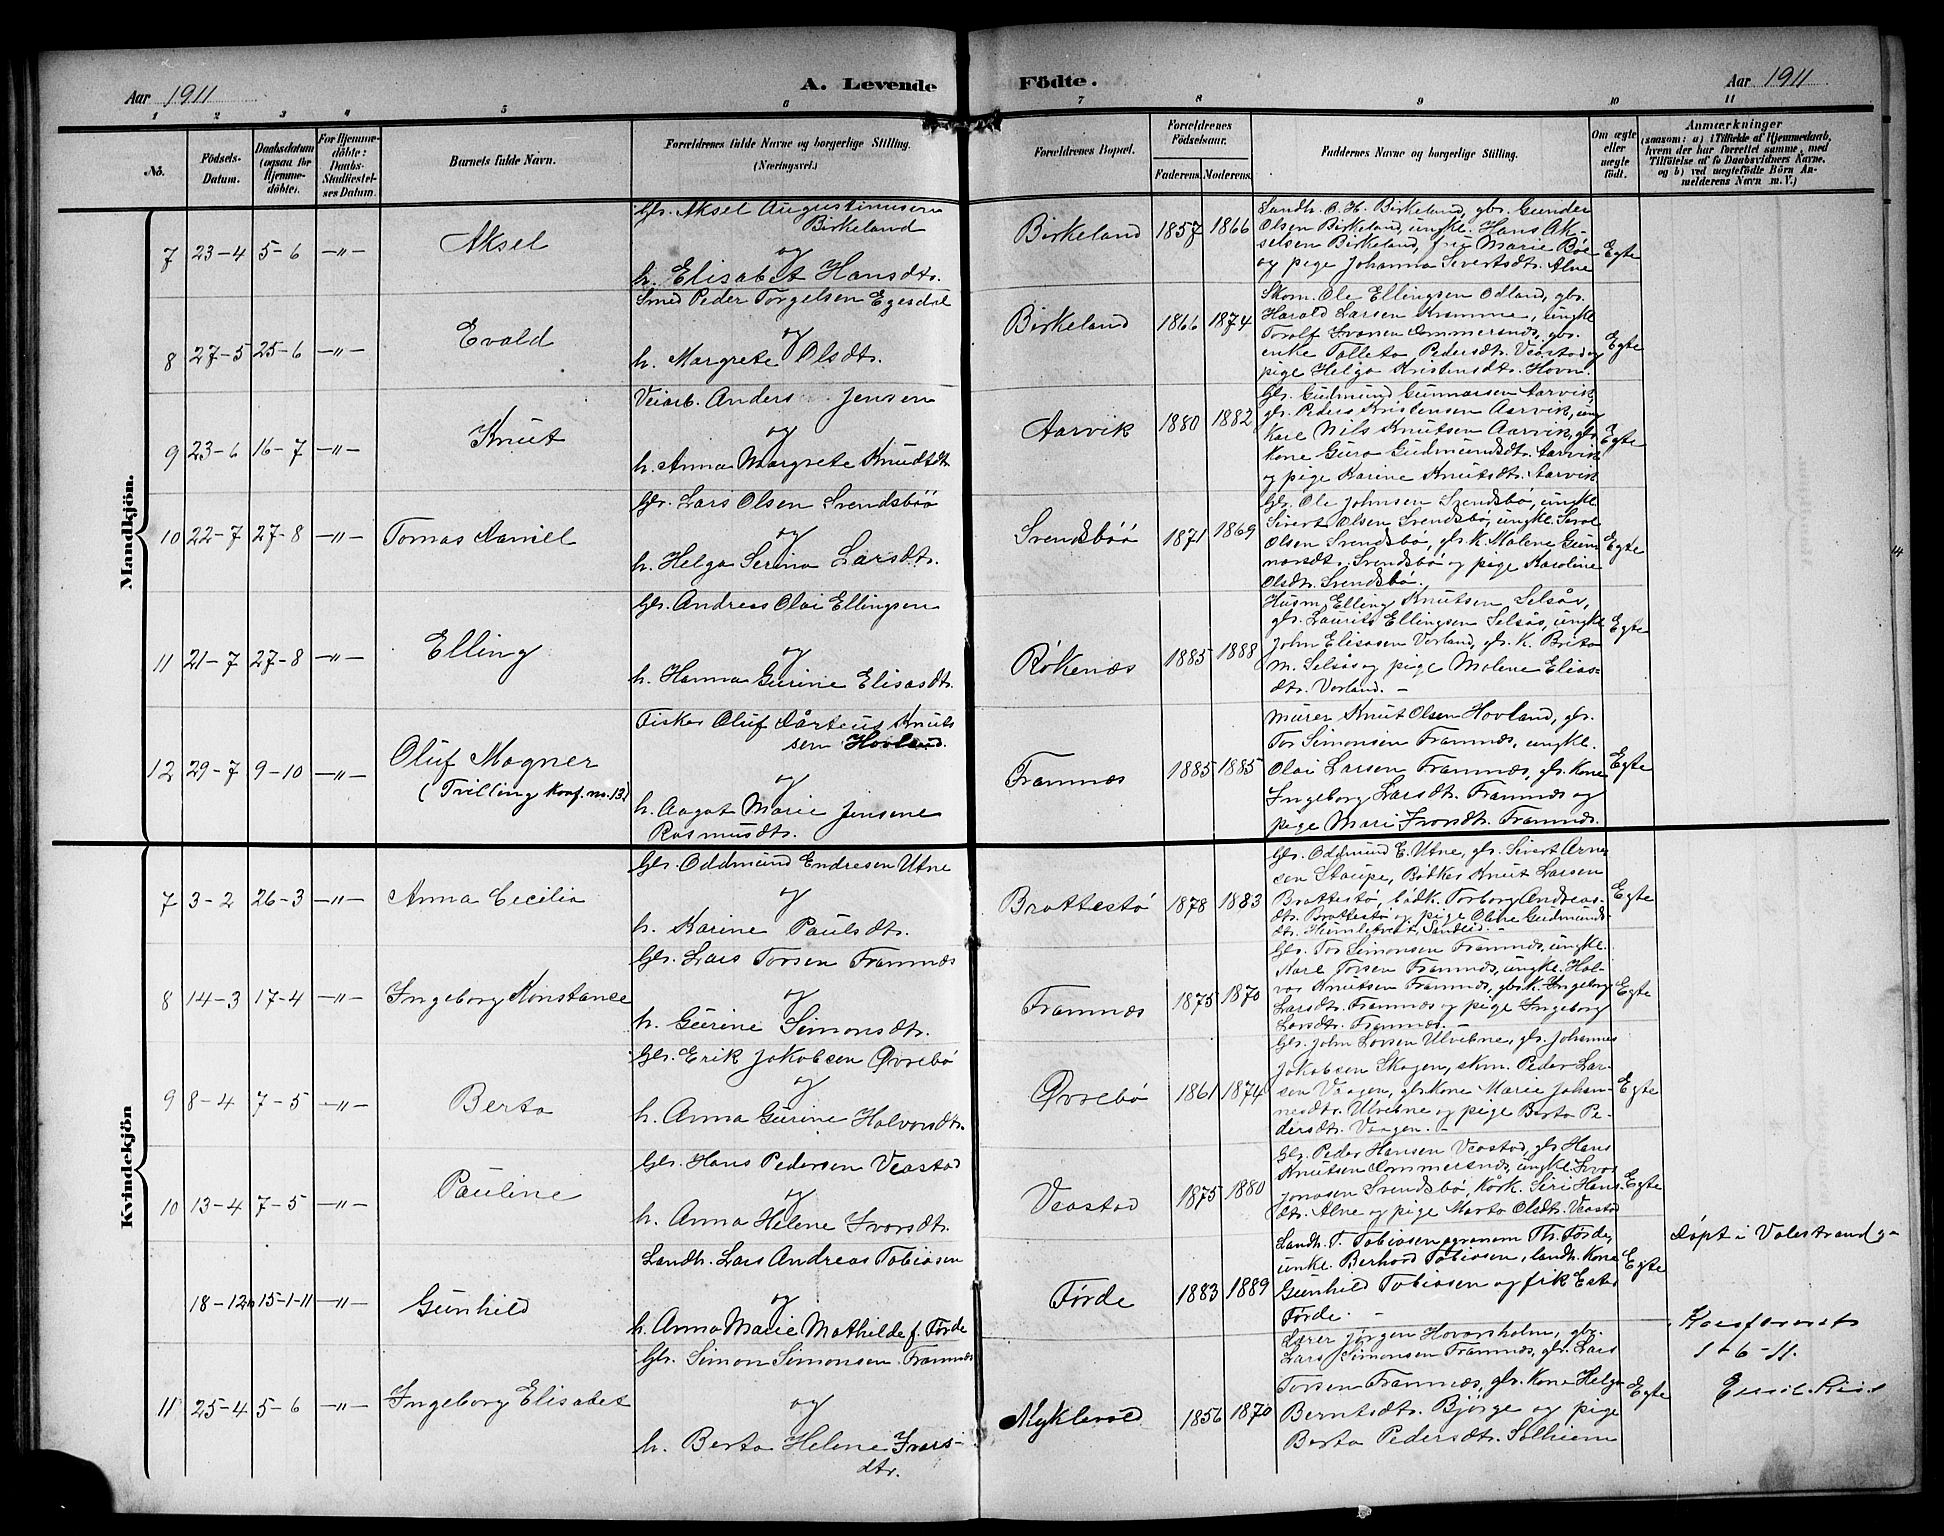 Aar 1911
A. Levende Födte.
Aar 1911
1 2 3 4 5 6 7 8 9 10 11
No.
Födsels-Datum.
Daabsdatum (ogsaa for Hjemmedöbte).
For Hjemmedöbte: Daabs-Stadfæstelses Datum.
Barnets fulde Navn.
Forældrenes fulde Navne og borgerlige Stilling.
(Næringsvei.)
Forældrenes Bopæl.
Forældrenes Födselsaar.
Faderens. Moderens.
Faddernes Navne og borgerlige Stilling.
Om ægte eller uægte födt.
Anmærkninger
(saasom: a) i Tilfælde af Hjemmedaab, hvem der har forrettet samme, med Tilföielse af to Daabsvidners Navne, og b) ved uægtefödte Börn Anmelderens Navn m. V.)
Mandkjön.
7 23-4 5-6 -"- Aksel
Gbr. Aksel Augustinusen
Birkeland
og
h. Elisabet Hansdtr.
Birkeland 1857 1866
Landh. O. H. Birkeland, gbr. Gunder
Olsen Birkeland, ungk. Hans Ak-
selsen Birkeland, fru Marie Böe
og pige Johanna Sivertsdtr. Alne
Egte
8 27-5 25-6 -"- Evald
Smed Peder Torgelsen Egesdal
og
h. Margrete Olsdtr.
Birkeland 1866 1874
Skom. Ole Ellingsen Odland, gbr.
Harald Larsen Kromme, ungk.
Torolf Ivarsen Ommersnæs, gbr.
enke Talleta Pedersdtr. Veastad og
pige Helga Kristensdtr. Hovn.
Egte
9 23-6 16-7 -"- Knut
Veiarb. Anders Jensen
og
h. Anna Margrete Knudtdtr.
Aarvik 1880 1882
Gbr. Gudmund Gunnarsen Aarvik,
gbr. Peder Kristensen Aarvik, ung
karl Nils Knutsen Aarvik, gbr.
kone Guro Gudmundsdtr. Aarvik
og pige Karine Knutsdtr. Aarvik
Egte
10 22-7 27-8 -"- Tomas Daniel
Gbr. Lars Olsen Svendsböö
og
h. Helga Serina Larsdtr.
Svendsböö 1871 1869
Gbr. Ole Johnsen Svendsbö, ungk.
Sivert Olsen Svendsbö, ungk.
Olsen Svendsbö, gbr. k. Malene Gun
narsdtr. Svendsbö og pige Karoline
Olsdtr. Svendsbö.
Egte
11 21-7 27-8 -"- Elling
Gbr. Andreas Olai Ellingsen
og
h. Hanna Gurine Eliasdtr.
Røkenæs 1885 1888
Husm. Elling Knutsen Selsås,
gbr. Laurits Ellingsen Selsås, ungk.
John Eliasen Vorland, gbr. k. Brita
M. Selsås og pige Malene Elias-
dtr. Vorland. -
Egte
12 29-7 9-10 -"- Oluf Magner
(Tvilling konf. no. 13)
Fisker Oluf Mårteus Knuts
sen Hovland.
og
h. Aagot Marie Jensine
Rasmusdtr.
Framnæs 1885 1885
Murer Knut Olsen Hovland, gbr.
Tor Simonsen Framnæs, ungk.
Olai Larsen Framnæs, gbr. kone
Ingeborg Larsdtr. Framnæs og
pige Mari Ivarsdtr. Framnæs.
Egte
Kvindekjön
7 3-2 26-3 -"- Anna Cecilia
Gbr. Oddmund Endresen Utne
og
h. Karine Paulsdtr.
Brattestö 1878 1883
Gbr. Oddmund E. Utne, gbr. Sivert Arne
sen Staupe, Bödker Knut Larsen
Brattestö, bödk. Torborg Andreas-
dtr. Brattestö og pige Oline Gudmunds-
dtr. Sandeid.
Egte
8 14-3 17-4 -"- Ingeborg Konstance
Gbr. Lars Torsen Framnæs
og
h. Gurine Simonsdtr.
Framnæs 1875 1870
Gbr. Tor Simonsen Framnæs, ungk.
Karl Torsen Framnæs, ungk. Hal-
vor Knutsen Framnæs, gbr. k. Ingeborg
Larsdtr. Framnæs og pige Ingeborg
Larsdtr. Framnæs. -
Egte
9 8-4 7-5 -"- Berta
Gbr. Erik Jakobsen Øvrebö
og
h. Anna Gurine Halvorsdtr.
Øvrebö 1861 1874
Gbr. John Larsen Ulvebne, gbr. Johannes
Jakobsen Skogen, skm. Peder Lar-
sen Vaagen, gbr. kone Marie Johan-
nesdtr. Ulvebne og pige Berta Pe-
dersdtr. Vaagen. -
Egte
10 13-4 7-5 -"- Pauline
Gbr. Hans Pedersen Veastad
og
h. Anna Helene Ivarsdtr.
Veastad 1875 1880
Gbr. Peder Hansen Veastad, gbr. Hans
Knutsen Ommersnæs, ungk. Ivar
Jonasen Svendsbö, Siri Hans-
dtr. Alne og pige Marta Olsdtr. Veastad
Egte
18-12 15-1-11 -"- Gunhild
Landh. Lars Andreas Tobiasen
og
h. Anna Marie Mathilde f. Førde
Førde 1883 1889
Landh. T. Tobiasen agronom Th. Førde,
unke. Berhard Tobiasen, landh. kone
Gunhild Tobiasen og frk Ester
Førde. -
Egte
Døpt i Valestrand
11 25-4 5-6 -"- Ingeborg Elisabet
Gbr. Simon Simonsen Framnæs
og
h. Berta Helene Ivars-
dtr.
Myklevold 1856 1870
Lærer Jørgen Hovarsholm, gbr.
Lars Simonsen Framnæs, gbr. Lars
Torsen Framnæs, gbr. kone Helga
Berntsdtr. Bjørge og pige
Berta Pedersdtr. Solheim
Egte
Konfereret
1-6-11.
Emil
14